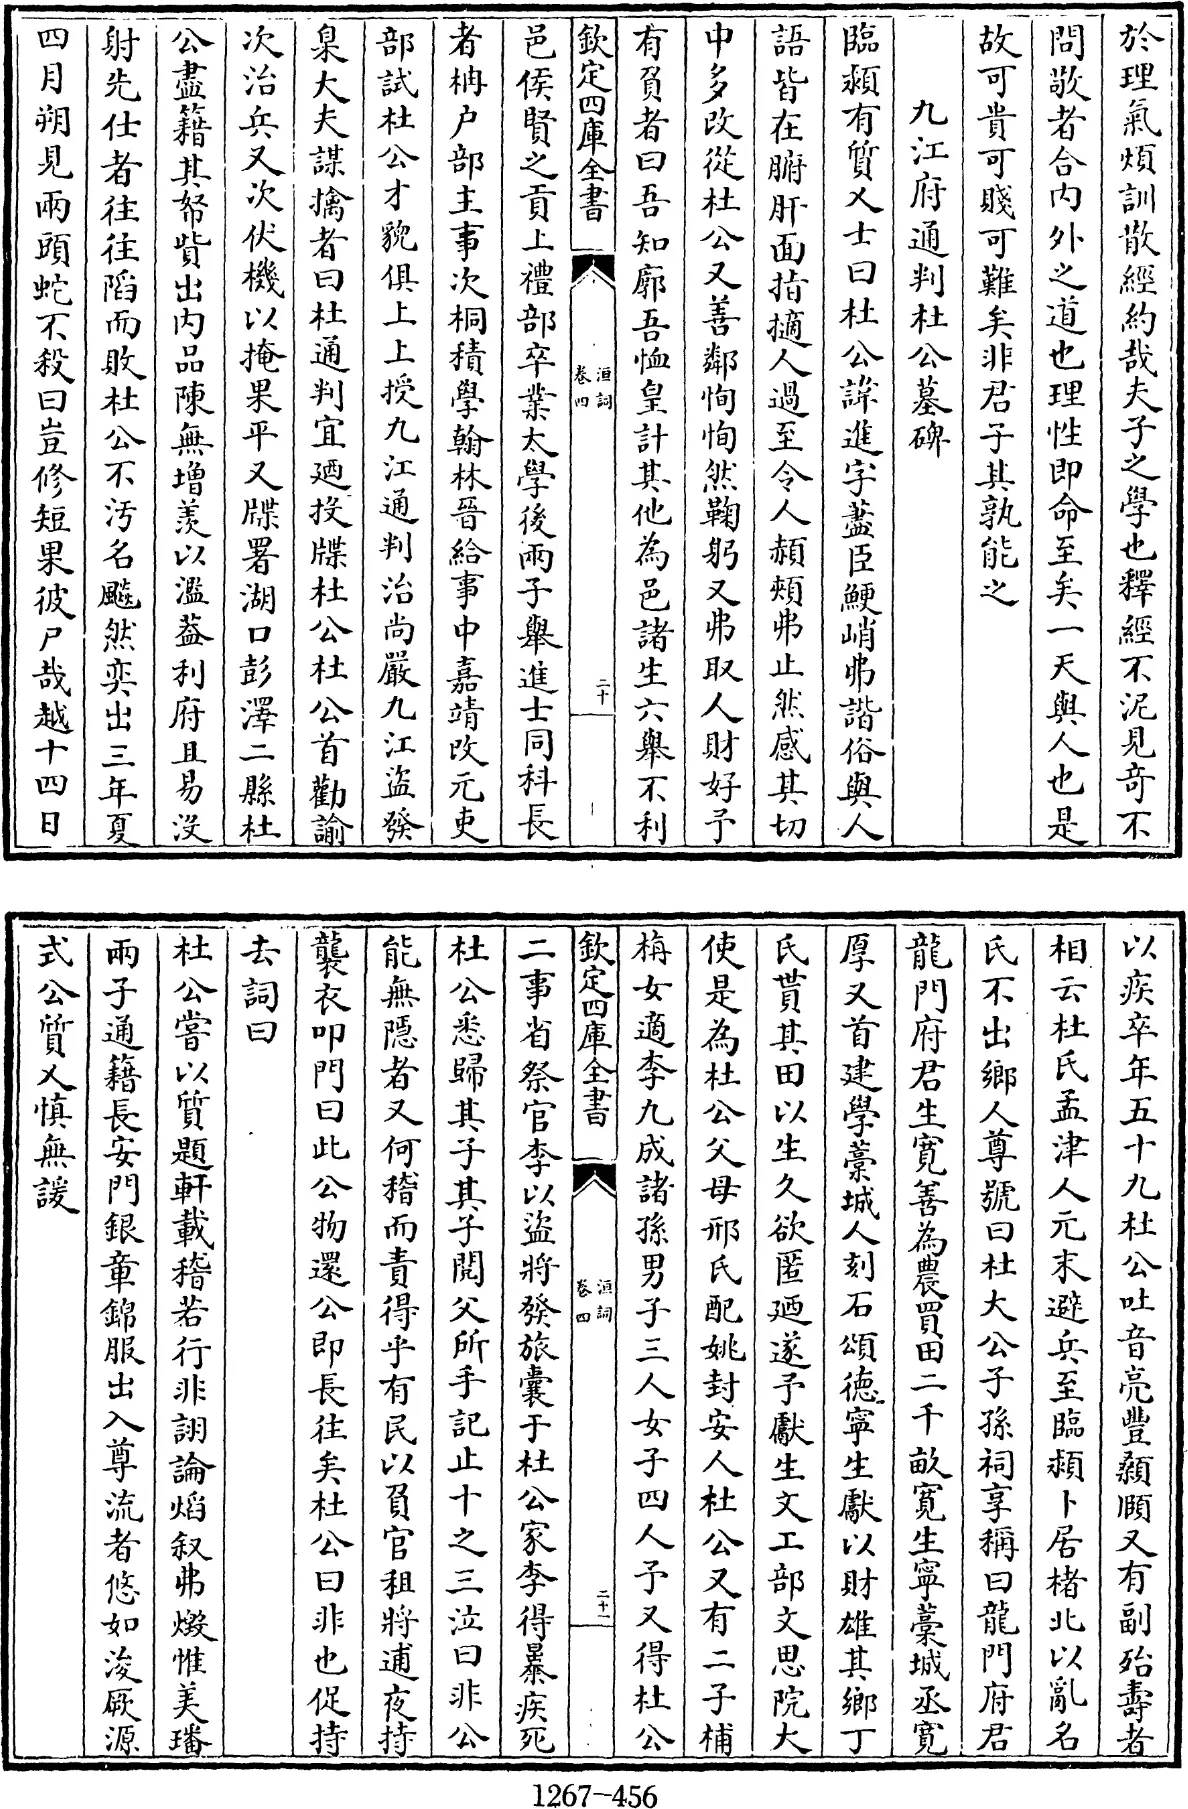 於理氣煩訓散經約哉夫子之學也釋經不泥見奇不
問敬者合内外之道也理性即命至矣一天與人也是
故可貴可賤可難矣非君子其孰能之
九江府通判杜公墓碑
臨潁有質乂士曰杜公諱進字藎臣鯁峭弗諧俗與人
語皆在腑肝面指擿人過至令人頳頰弗止然感其切
中多改從杜公又善鄰恂恂然鞠躬又弗取人財好予
有負者曰吾知廓吾恤皇計其他為邑諸生六舉不利
欽定四庫全書
洹詞
卷四
二十
邑侯賢之貢上禮部卒業太學後兩子舉進士同科長
者柟户部主事次桐積學翰林晉給事中嘉靖改元吏
部試杜公才貌俱上上授九江通判治尚嚴九江盜發
臬大夫謀擒者曰杜通判宜廼投牒杜公杜公首勸諭
次治兵又次伏機以掩果平又牒署湖口彭澤二縣杜
公盡籍其帑貲出内品陳無增羨以濫蓋利府且易没
射先仕者往往陷而敗杜公不汚名颷然奕出三年夏
四月朔見兩頭蛇不殺曰豈修短果彼尸哉越十四日
以疾卒年五十九杜公吐音亮豐顙頤又有副殆壽者
相云杜氏孟津人元末避兵至臨潁卜居楮北以亂名
氏不出鄉人尊號曰杜大公子孫祠享稱曰龍門府君
龍門府君生寛善為農買田二千畝寛生寧藁城丞寛
厚又首建學藁城人刻石頌德寧生獻以財雄其鄉丁
氏貰其田以生久欲匿廼遂予獻生文工部文思院大
使是為杜公父母邢氏配姚封安人杜公又有二子楠
梅女適李九成諸孫男子三人女子四人予又得杜公
欽定四庫全書
洹詞
卷四
二十一
二事省祭官李以盜將發旅囊于杜公家李得暴疾死
杜公悉歸其子其子閲父所手記止十之三泣曰非公
能無隱者又何稽而責得乎有民以負官租將逋夜持
襲衣叩門曰此公物還公即長往矣杜公曰非也促持
去詞曰
杜公嘗以質題軒載稽若行非詡論焰叙弗燬惟美璠
兩子通籍長安門銀章錦服出入尊流者悠如浚厥源
式公質乂慎無諼
1267-456